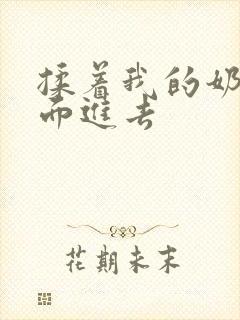 揉着我的奶
而进去
花期未末